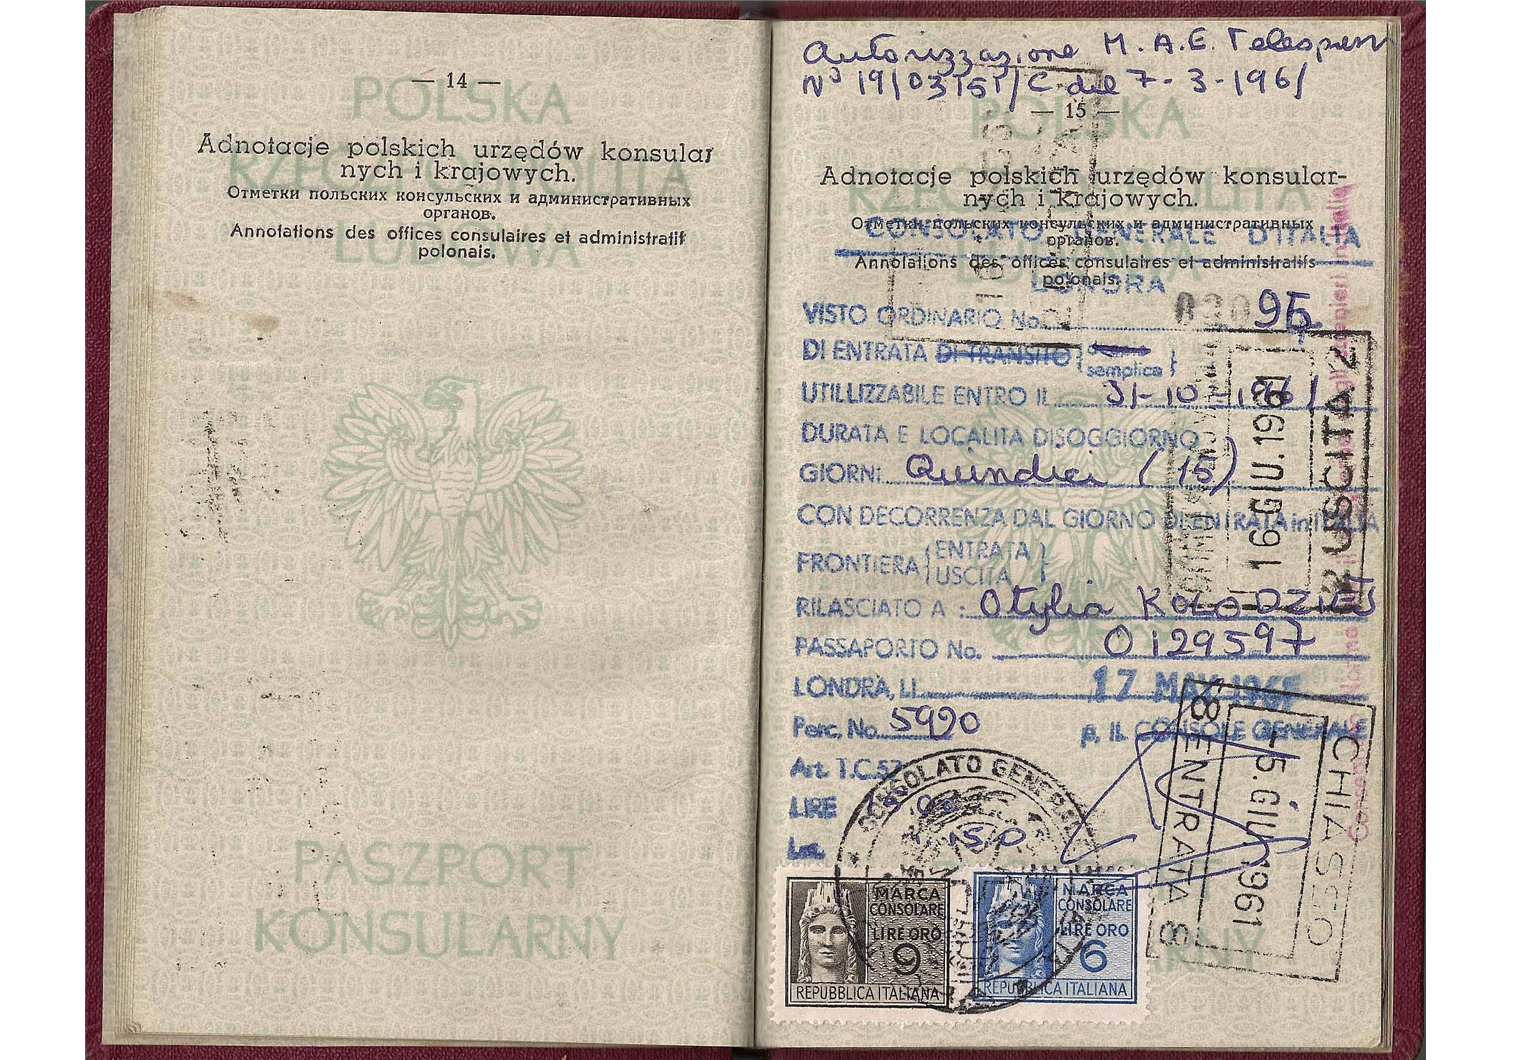 — 14 —
POLSKA
RZECZPOSPOLITA
LUDOWA
Adnotacje polskich urzędów konsular
nych i krajowych.
Отметки польских консульских и административных
органов.
Annotations des offices consulaires et administratif
polonais.
PASZPORT
KONSULARNY
Autorizzazione M.A.E. Telespress
N° 19/03151/C del 7-3-1961
— 15 —
POLSKA
Adnotacje polskich urzędów konsular-
nych i krajowych.
Отметки польских консульских и административных
органов.
Annotations des offices consulaires et administratifs
polonais.
CONSOLATO GENERALE D'ITALIA
LONDRA
VISTO ORDINARIO No. 95
DI ENTRATA DI TRANSITO { semplice }
UTILLIZZABILE ENTRO IL 31-10-1961
DURATA E LOCALITA DISOGGIORNO
GIORNI Quindici (15)
CON DECORRENZA DAL GIORNO DI ENTRATA in ITALIA
FRONTIERA { ENTRATA
USCITA }
RILASCIATO A : Otylia KOLODZIEJ
PASSAPORTO No. 0129597
LONDRA, LI 17 MAY 1961
Perc. No. 5990
p. IL CONSOLE GENERALE
Art. 1.C.57
LIRE
Lst. 150
CONSOLATO GENERALE
MARCA
CONSOLARE
LIRE ORO
9
REPUBBLICA ITALIANA
MARCA
CONSOLARE
LIRE ORO
6
REPUBBLICA ITALIANA
2 USCITA 2
16 GIU. 1961
CHIASSO
-5. GIU. 1961
8 ENTRATA 8